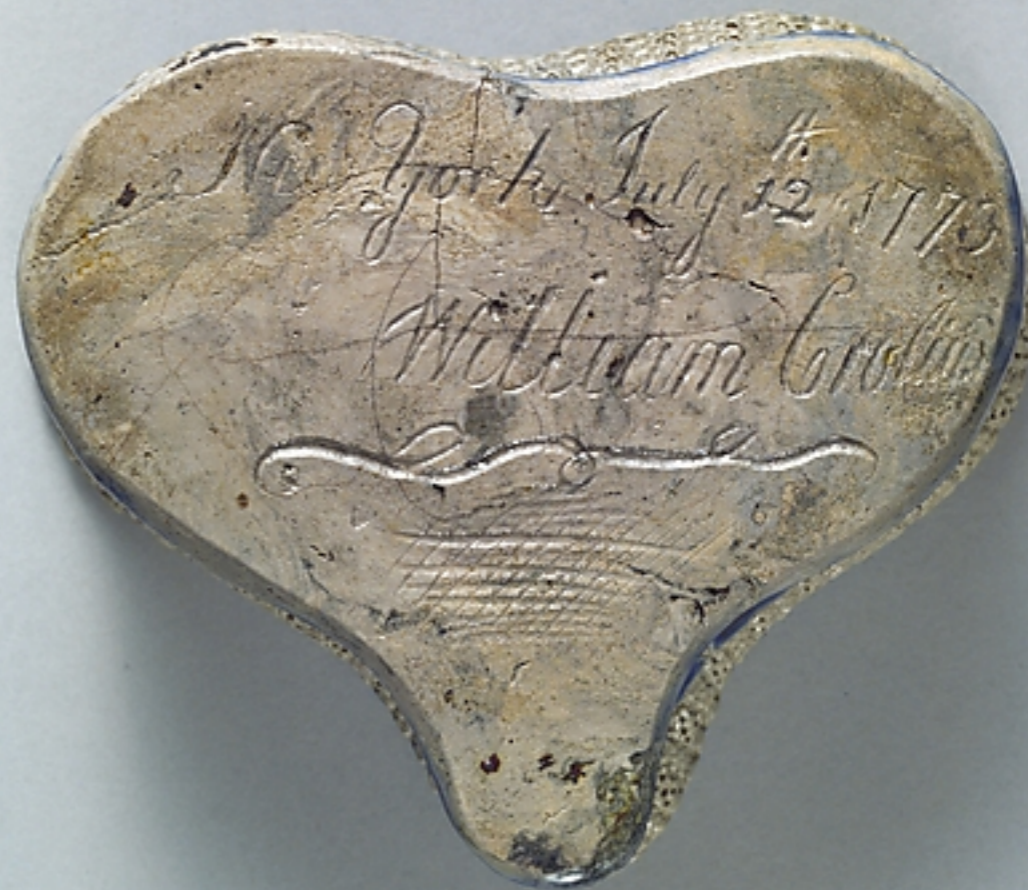 New York July 12th 1773
William Crolius